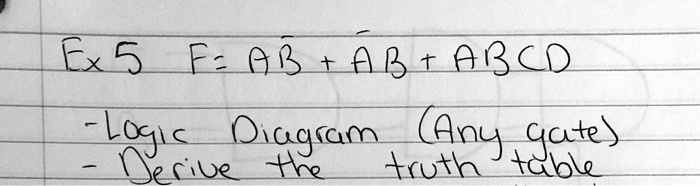 Ex 5 F= AB̄ + ĀB + ABCD
-Logic Diagram (Any gate)
- Derive the truth table